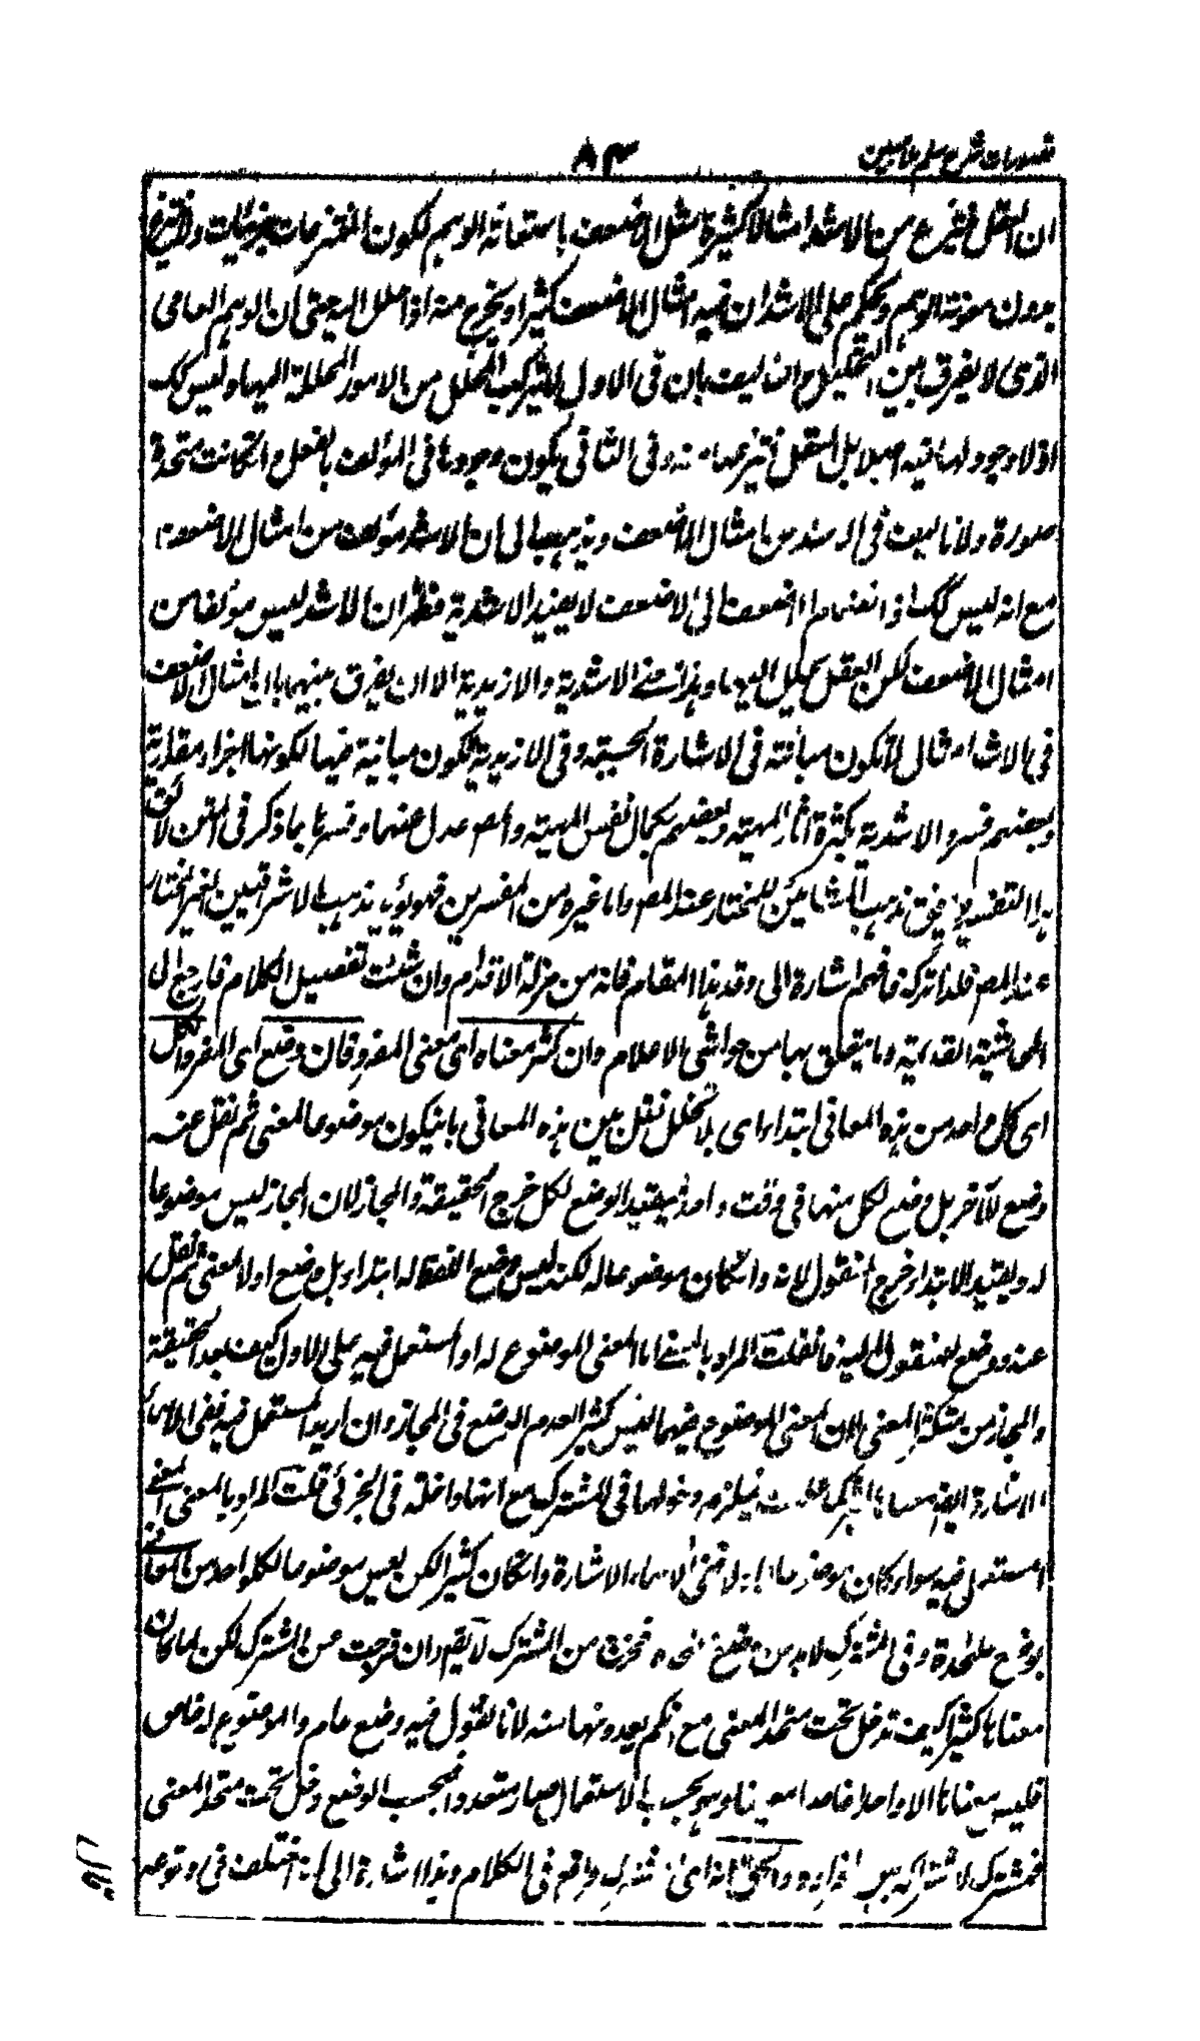 تصورات شرح سلم ملا مبین
٨٣
ان العقل ينتزع من الاشد امثالا كثيرة مثل الاضعف باستعانة الوهم لكون المنتزعات جزئيات
بدون معونة الوهم ويحكم على الاشد ان فيه امثال الاضعف كثيرا ويخرج منه اذا حلل اليه حتى ان الوهم العامى
الذى لا يفرق بين التحليل والتاليف بان فى الاول المحلل من الامور المحللة اليها وليس كك
اذ لا وجود لها فيه اصلا بل العقل ينتزعها منه وفى الثانى يكون وجودها فى المؤلف بالفعل وان كانت متحدة
صورة ولا تاليف فى الاشد من امثال الاضعف ويذهب الى ان الاشد مؤلف من امثال الاضعف
مع انه ليس كك اذ انضمام الاضعف الى الاضعف لا يفيد الاشدية فظهر ان الاشد ليس مؤلفا من
امثال الاضعف لكن العقل يحلل اليها وهذا معنى الاشدية والازيدية الا ان يفرق بينهما بان امثال الاضعف
فى الاشد امثال لا تكون مبائنة فى الاشارة الحسية وفى الازيدية تكون مباينة فيها لكونها اجزاء مقدارية
وبعضهم فسروا الاشدية بكثرة اثار المهية وبعضهم بكمال نفس المهية والمصم عدل عنهما وفسرها بما ذكر فى المتن لان
هذا التفسير يوفق مذهب المشائين المختار عند المصم واما غيره من المفسرين فهو يؤيد مذهب الاشراقيين الغير المختار
عند المصم فلذا تركه فافهم اشارة الى دقة هذا المقام فانه من مزلة الاقدام وان شئت تفصيل الكلام فارجع الى
الحاشية القديمة وما يتعلق بها من حواشى الاعلام وان كثر معناه اى معنى المفرد فان وضع اى المفرد لكل
اى كل واحد من هذه المعانى ابتداء اى بلا تخلل نقل بين هذه المعانى بان يكون موضوعا لمعنى ثم نقل عنه
وضع لآخر بل وضع لكل منها فى وقت واحد فبقيد الوضع لكل خرج الحقيقة والمجاز لان المجاز ليس موضوعا
له وبقيد الابتداء خرج المنقول لانه وان كان موضوعا له لكنه ليس وضع اللفظ له ابتداء بل وضع اولا لمعنى ثم نقل
عنه ووضع لمنقول اليه فان قلت المراد بالمعنى اما المعنى الموضوع له او المستعمل فيه على الاول كيف يعد الحقيقة
والمجاز من متكثر المعنى لان المعنى الموضوع فيهما ليس كثيرا لعدم الوضع فى المجاز وان اريد المستعمل فيه ففى الاسماء
الاشارة ايضا معناها فيلزم دخولها فى المشترك مع انها داخلة فى الجزئى قلت المراد بالمعنى المعنى
المستعمل فيه سواء كان موضوعا له ام لا فمعنى الاسماء الاشارة وان كان كثيرا لكن ليس موضوعا لكل واحد من المعانى
بوضع علىحدة وفى المشترك لابد من فخرجت من المشترك لا يقم وان خرجت عن المشترك لكن لما كان
معناها كثيرا كيف تدخل تحت متحد المعنى مع انكم تعدونها منه لانا نقول فيه وضع عام والموضوع له خاص
فليس معناها الا واحدا خاصا معينا وهو بحسب الاستعمال صار متعددا فبحسب الوضع دخل تحت متحد المعنى
فمشترك لاشتراكه بين افراده والحق انه اى المشترك واقع فى الكلام وهذا اشارة الى انه اختلف فى وقوعه